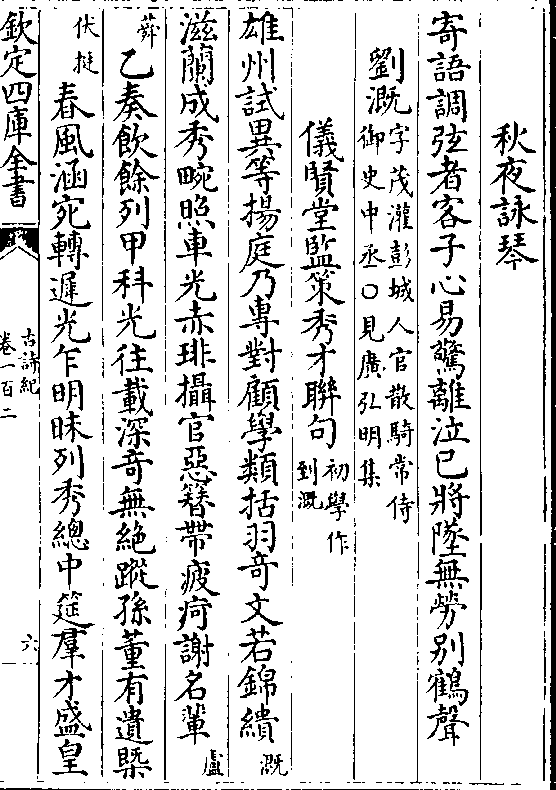 秋夜詠琴
寄語調弦者客子心易驚離泣已將墜無勞别鶴聲
劉溉字茂灌彭城人官散騎常侍
御史中丞○見廣弘明集
儀賢堂監策秀才聯句初學作
到溉
雄州試異等揚庭乃專對顧學類括羽竒文若錦繢溉
滋蘭成秀畹照車光赤琲攝官惡簪帶疲痾謝名輩盧
蕣乙奏飲餘列甲科光往載深竒無絶蹤孫董有遺槩
伏挺春風涵宛轉遲光乍明昧列秀總中筵羣才盛皇
欽定四庫全書
古詩紀
卷一百二
六